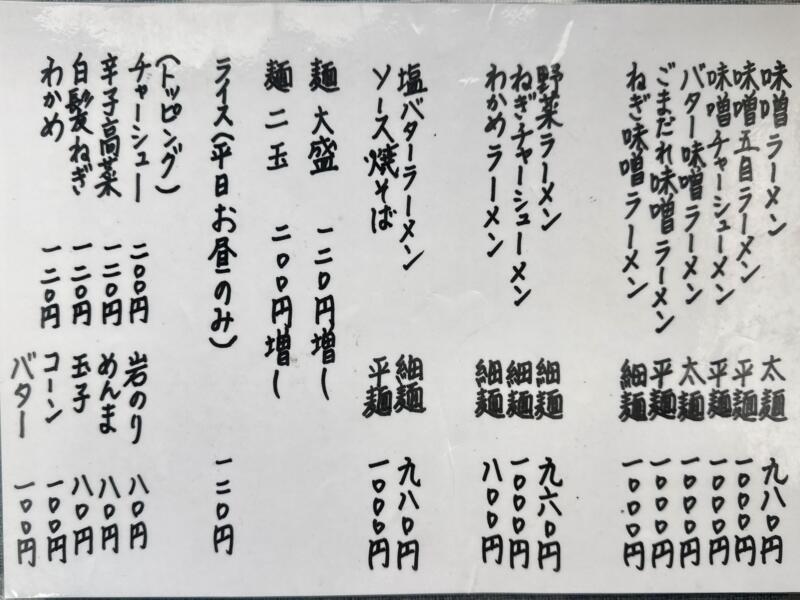 味噌ラーメン 太麺 九八〇円
味噌五目ラーメン 平麺 一〇〇〇円
味噌チャーシューメン 平麺 一〇〇〇円
バター味噌ラーメン 太麺 一〇〇〇円
ごまだれ味噌ラーメン 平麺 一〇〇〇円
ねぎ味噌ラーメン 細麺 一〇〇〇円
野菜ラーメン 細麺 九六〇円
ねぎチャーシューメン 細麺 一〇〇〇円
わかめラーメン 細麺 八〇〇円
塩バターラーメン 細麺 九八〇円
ソース焼そば 平麺 一〇〇〇円
麺大盛 一二〇円増し
麺二玉 二〇〇円増し
ライス(平日お昼のみ) 一二〇円
(トッピング)
チャーシュー 二〇〇円 岩のり 八〇円
辛子高菜 一二〇円 めんま 八〇円
白髪ねぎ 一二〇円 玉子 八〇円
わかめ 一二〇円 コーン 一〇〇円
バター 一〇〇円